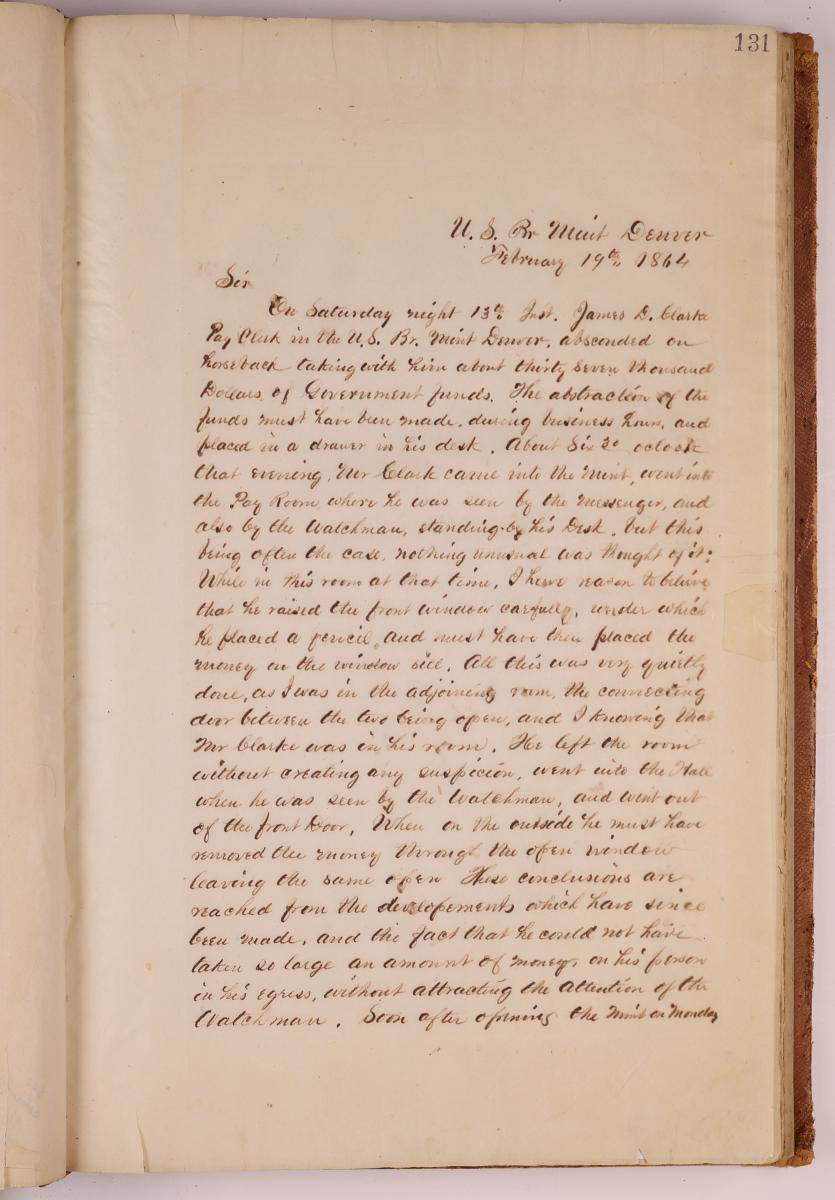 131
U. S. Br Mint Denver
February 19th, 1864
Sir
On Saturday night 13th Inst. James D. Clarke
Pay Clerk in the U.S. Br. Mint Denver, absconded on
horseback taking with him about thirty seven thousand
Dollars, of Government funds. The abstraction of the
funds must have been made, during business hours, and
placed in a drawer in his desk. About Six 30 oclock
that evening, Mr Clark came into the Mint, went into
the Pay Room, where he was seen by the Messenger, and
also by the Watchman, standing by his Desk, but this
being often the case, nothing unusual was thought of it:
While in this room at that time, I have reason to believe
that he raised the front window carefully, under which
he placed a pencil, and must have then placed the
money on the window sill. All this was very quietly
done, as I was in the adjoining room, the connecting
door between the two being open, and I knowing that
Mr Clarke was in his room. He left the room
without creating any suspicion, went into the Hall
when he was seen by the Watchman, and went out
of the front Door, When on the outside he must have
removed the money through the open window
leaving the same open These conclusions are
reached from the developements which have since
been made, and the fact that he could not have
taken so large an amount of money, on his person
in his egress, without attracting the attention of the
Watchman. Soon after opening the Mint on Monday